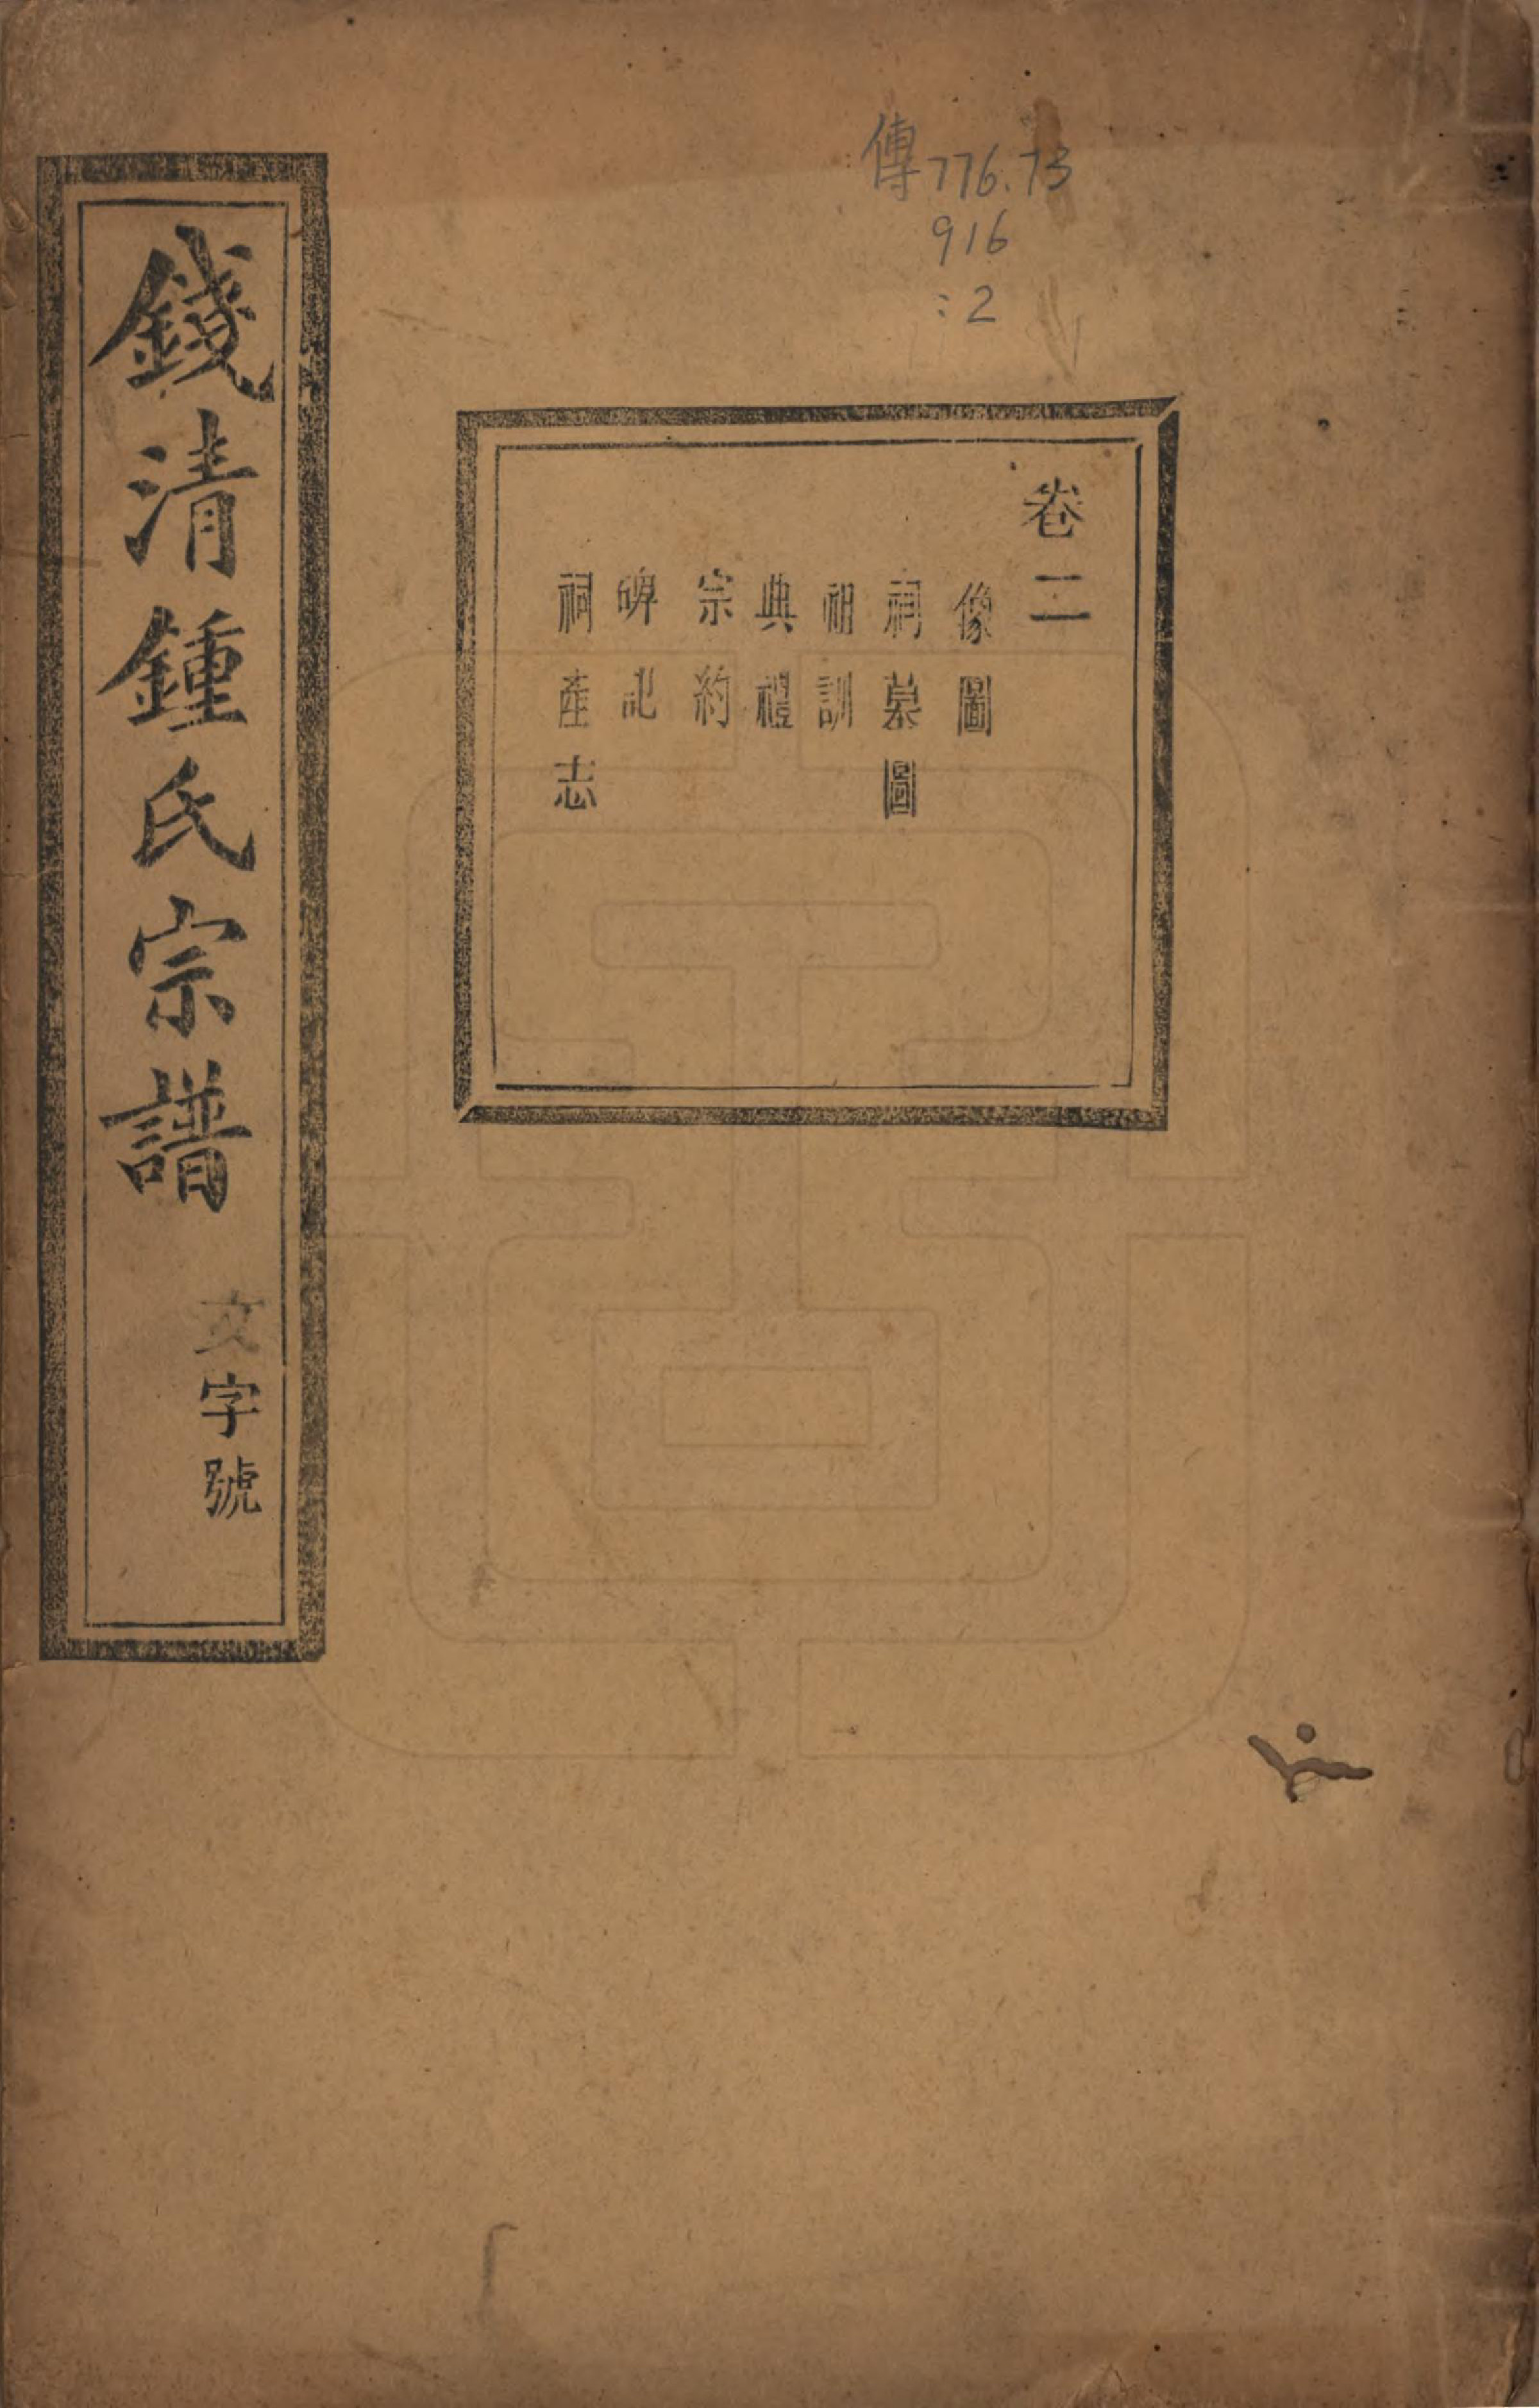 傳776.73
916
:2
卷二
像圖
祠墓圖
祖訓
典禮
宗約
碑記
祠產志
錢清鍾氏宗譜
文字號